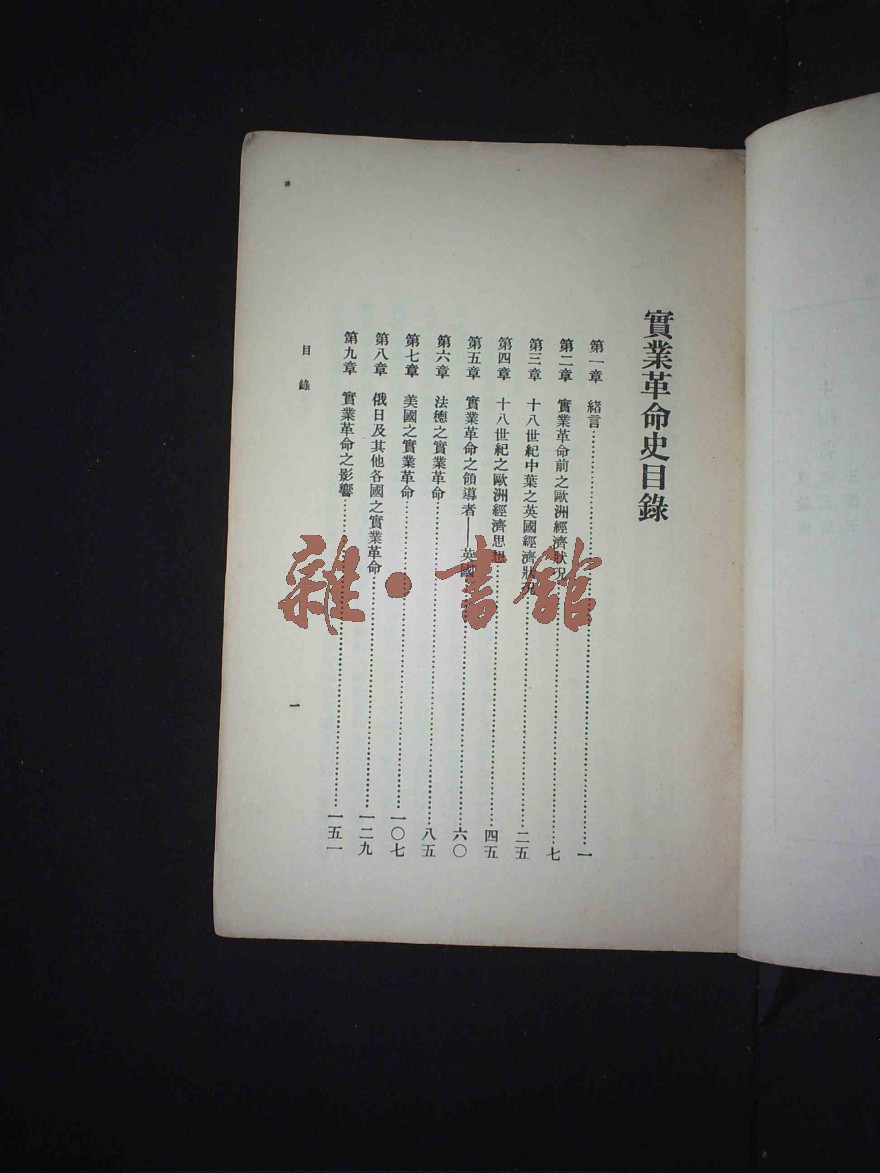 實業革命史目錄
第一章　緒言……一
第二章　實業革命前之歐洲經濟狀況……七
第三章　十八世紀中葉之英國經濟狀況……二五
第四章　十八世紀之歐洲經濟思想……四五
第五章　實業革命之領導者——英國……六〇
第六章　法德之實業革命……八五
第七章　美國之實業革命……一〇七
第八章　俄日及其他各國之實業革命……一二九
第九章　實業革命之影響……一五一
目錄
一
雜·書館